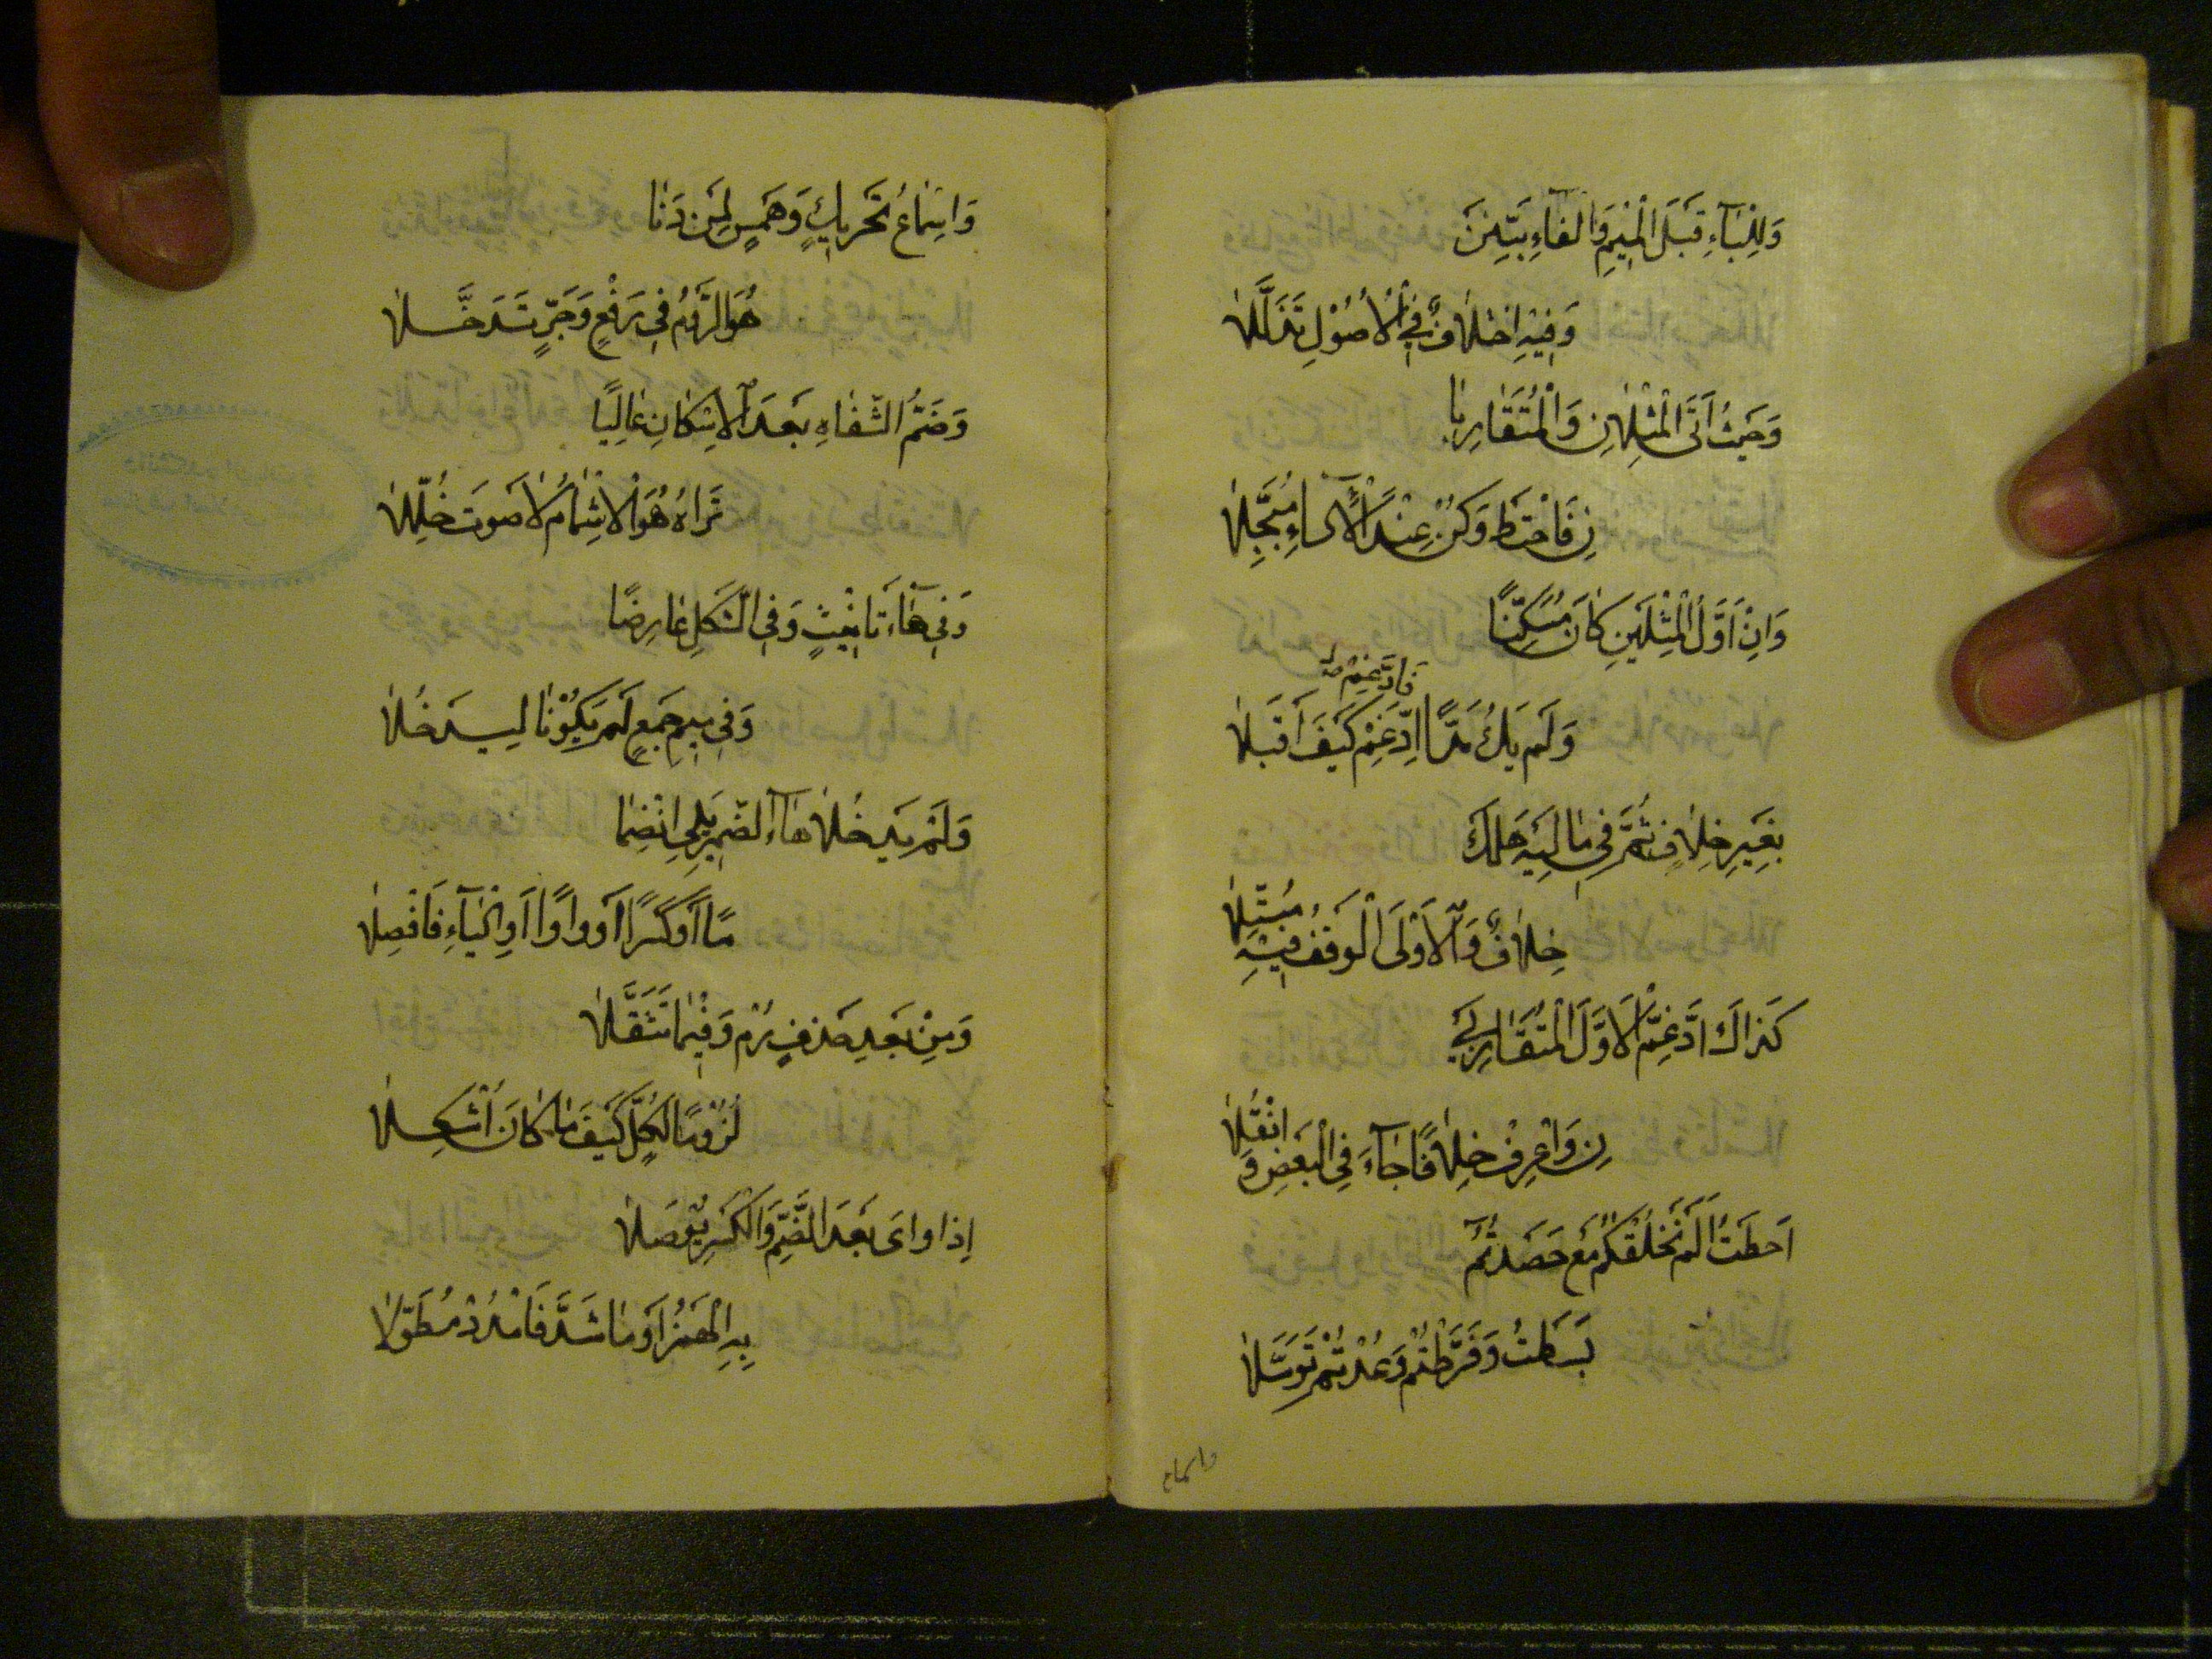 وَلِلْبَآءِ قَبْلَ الْمِيْمِ وَالْفَآءِ بَيِّنَنَ
وَفِيْهِ اخْتِلَافٌ فِي الْاُصُوْلِ تَذَلَّلَا
وَحَيْثُ اَتَى الْمِثْلَانِ وَالْمُتَقَارِبَا
نِ فَاحْتَطْ وَكُنْ عِنْدَ الْاَدَاءِ مُبَجِّلَا
وَاِنْ اَوَّلُ الْمِثْلَيْنِ كَانَ مُسَكَّنًا
فَادَّغِمْ
وَلَمْ يَكُ مَدًّا اِدَّغِمْ كَيْفَ اَقْبَلَا
بِغَيْرِ خِلَافٍ ثُمَّ فِي مَالِيَه هَلَكَ
خِلَافٌ وَالْاَوْلَى الْوَقْفُ فِيْهِ مُبَتِّلَا
كَذَاكَ ادَّغِمَّ الْاَوَّلَ الْمُتَقَارِبَيْ
نِ وَاعْرِفْ خِلَافًا جَآءَ فِي الْبَعْضِ وَانْقُلَا
اَحَطْتُ اَلَمْ نَخْلُقْكُمْ مَعْ حَصَدْتُّمْ
بَسَطْتَ وَفَرَّطْتُمْ وَعُدْتُّمْ تَوَسَّلَا
واسماع
وَاسْمَاعُ تَحْرِيكٍ وَهَمْسٍ لِمَنْ دَنَا
هُوَ الرَّوْمُ فِي رَفْعٍ وَجَرٍّ تَدَخَّلَا
وَضَمُّ الشِّفَاهِ بَعْدَ الْاِسْكَانِ عَالِيًا
تَرَاهُ هُوَ الْاِشْمَامُ لَا صَوْتَ خُلِّلَا
وَفِي هَاءِ تَانِيْثٍ وَفِي الشَّكْلِ عَارِضًا
وَفِي مِيمِ جَمْعٍ لَمْ يَكُوْنَا لِيَدْخُلَا
وَلَمْ يَدْخُلَا هَاءَ الضَّمِيرِ يَلِي انْضِمَا
مًا اَوْ كَسْرًا اَوْ وَاوًا اَوِ الْيَآءِ فَافْصِلَا
وَمِنْ بَعْدِ حَذْفٍ رُمْ وَفِيْمَا تَثَقَّلَا
لُزُوْمًا لِكُلٍّ كَيْفَ مَا كَانَ اُشْكِلَا
اِذَا وَاىْ بَعْدَ الضَّمِّ وَالْكَسْرِ يُوْصَلَا
بِهِ الْهَمْزُ اَوْ مَا شَدَّ فَامْدُدْ مُطَوِّلَا